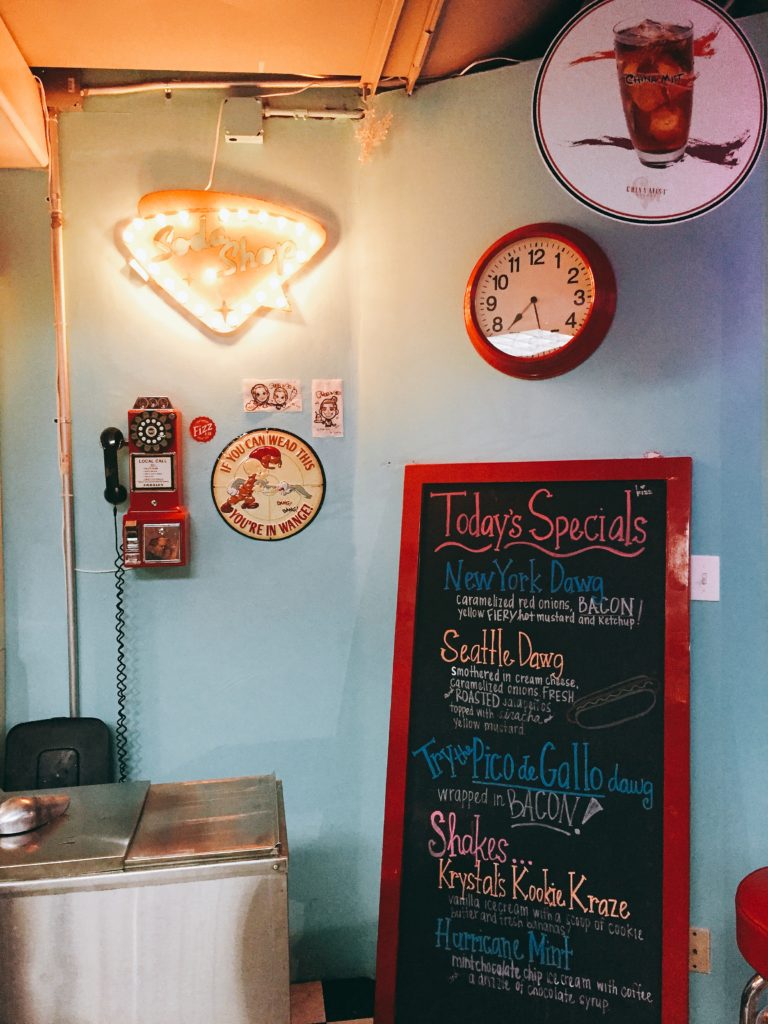 CHINA MIST
CHINA MIST
Soda
Shop
12
1
2
3
4
8
9
10
11
Fizz
LOCAL CALL
IF YOU CAN WEAD THIS
BANG!
BANG!
YOU'RE IN WANGE!
fizz
Today's Specials
New York Dawg
caramelized red onions, BACON!
yellow FIERY hot mustard and Ketchup!
Seattle Dawg
Smothered in cream cheese,
caramelized onions, FRESH
ROASTED Jalapeños
topped with siracha
yellow mustard
Try the Pico de Gallo dawg
wrapped in BACON!
Shakes...
Krystal's Kookie Kraze
vanilla icecream with a scoop of cookie
butter and fresh bananas?
Hurricane Mint
mint chocolate chip ice cream with coffee
a drizzle of chocolate syrup